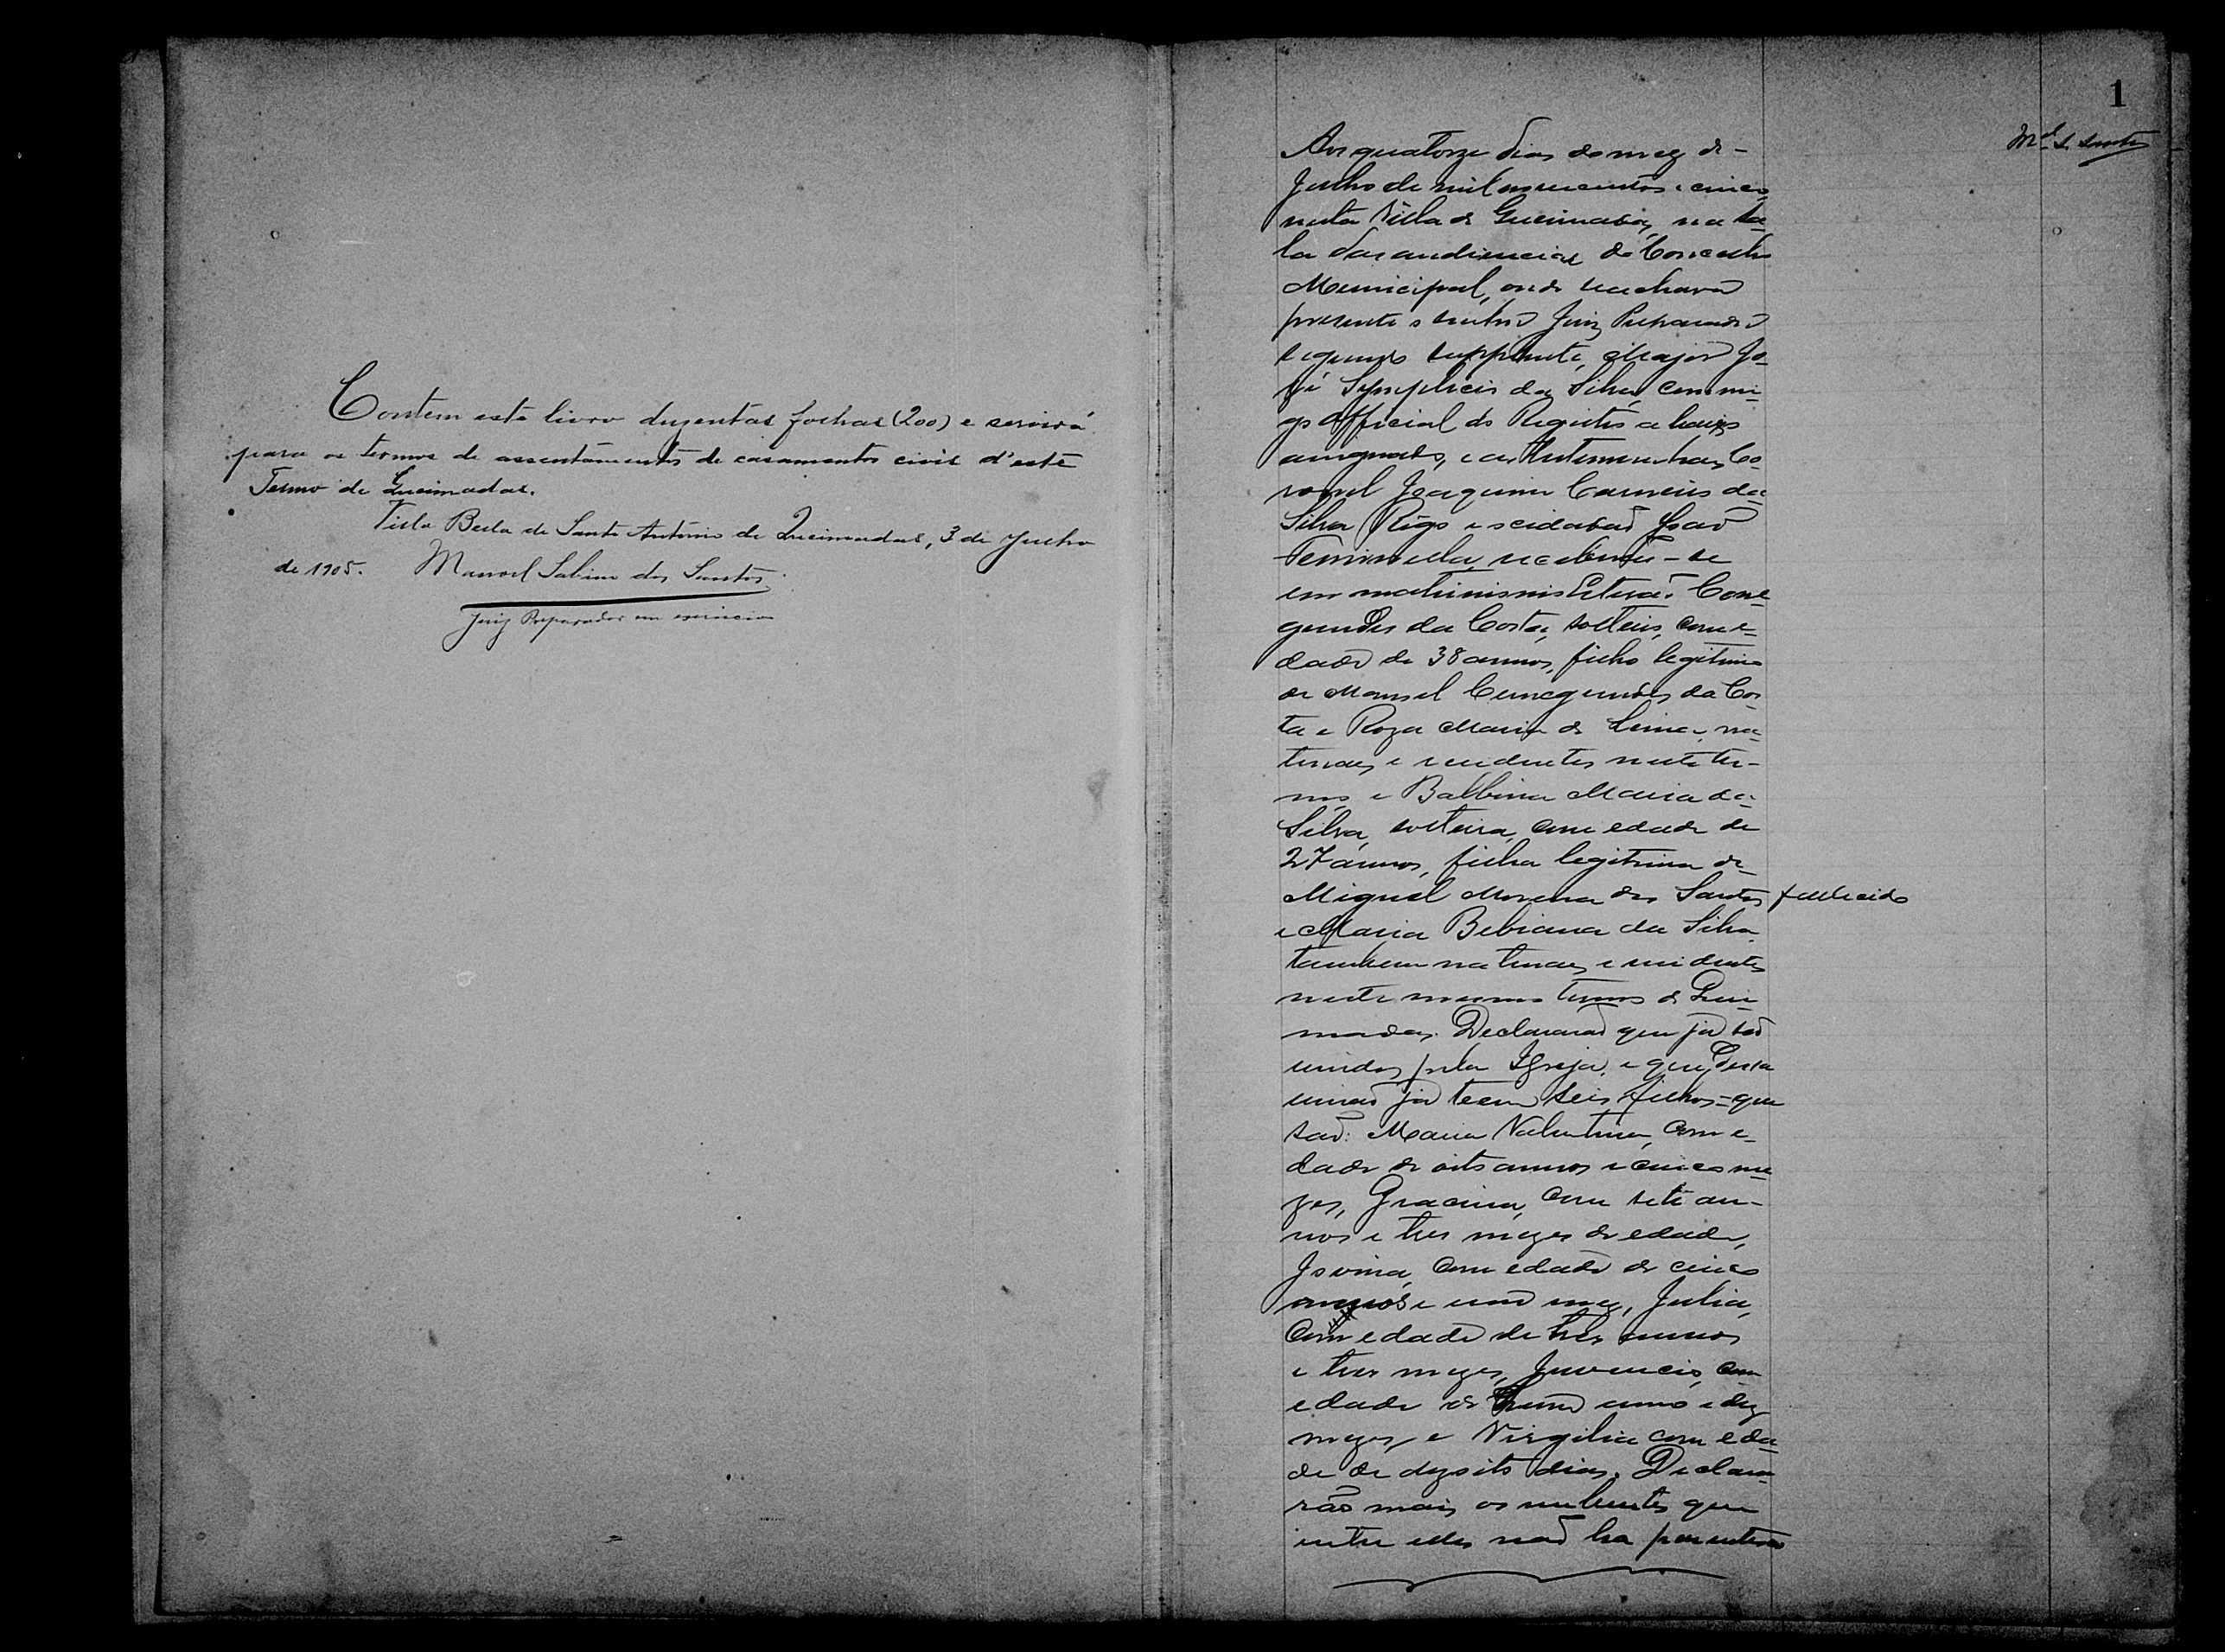 Contem este livro duzentas folhas (200) e servirá
para os termos de assentamentos de casamentos civis d'este
Termo de Queimadas.
Villa Bella de Santo Antonio de Queimadas, 3 de Julho
de 1905. Manoel Sabino dos Santos
Juiz Preparador em exercicio
1
M.el S. Santos
Aos quatorze dias do mez de
Julho de mil novecentos e cinco,
nesta Villa de Queimadas, na sa-
la das audiencias do Concelho
Municipal, onde se achava
presente o senhor Juiz Preparador
segundo supplente, Major Jo-
sé Symplicio da Silva, commi-
go Official do Registro abaixo
assignado, e as testemunhas Co-
ronel Joaquim Carneiro da
Silva Rego e o cidadão João
receberão-se
em matrimonio Cone-
gundes da Costa, solteiro, com e-
dade de 38 annos, filho legitimo
de Manoel Cunegundes da Cos-
ta e Roza Maria de Lima, na-
turaes e residentes neste ter-
mo, e Balbina Maria da
Silva, solteira, com edade de
27 annos, filha legitima de
Miguel Moreira dos Santos fallecido
e Maria Bibiana da Silva
tambem naturaes e residentes
neste mesmo termo de Quei-
madas. Declararão que já são
unidos pela Igreja, e que desta
união já teem seis filhos - que
são: Maria Valentina, com e-
dade de oito annos e cinco me-
zes, Gracina, com sete an-
nos e tres mezes de edade,
Jovina, com edade de cinco
annos e um mez, Julia,
com edade de tres annos
e tres mezes, Juvencio, com
edade de hum anno e dez
mezes, e Virgilia com eda-
de de dezoito dias. Decla-
rão mais os nubentes que
entre elles não ha parentesco